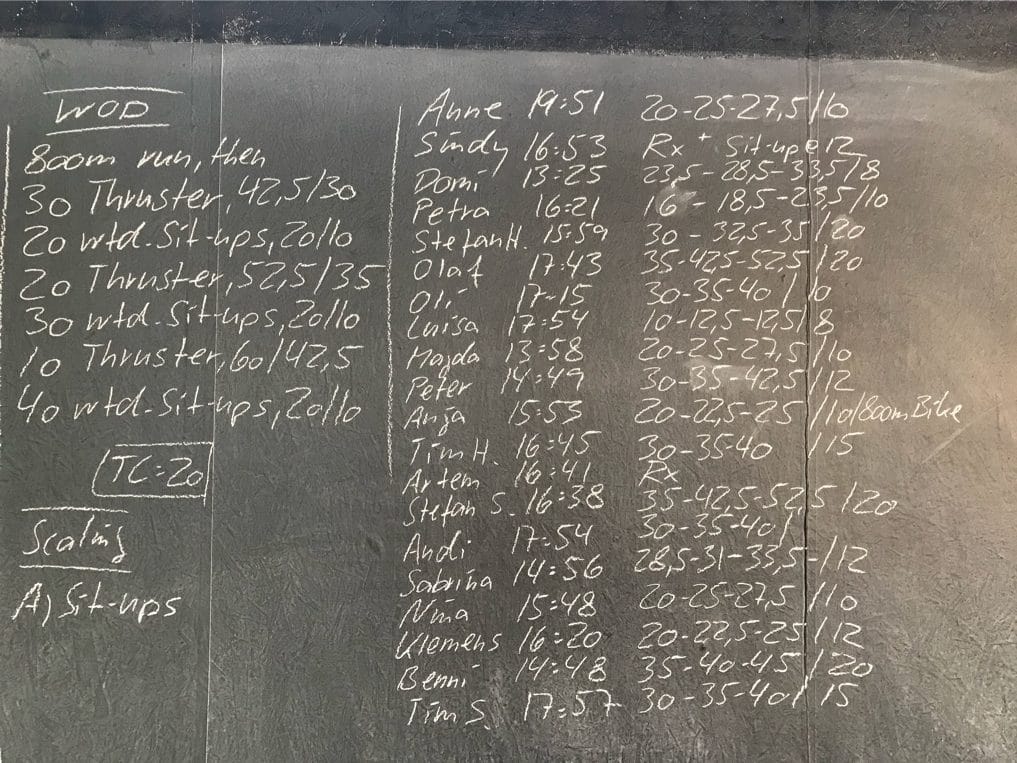 WOD
800m run, then
30 Thruster, 42,5/30
20 wtd. Sit-ups, 20/10
20 Thruster, 52,5/35
30 wtd. Sit-ups, 20/10
10 Thruster, 60/42,5
40 wtd. Sit-ups, 20/10
TC=20
Scaling
A) Sit-ups
Anne 19:51 20-25-27,5/10
Sindy 16:53 Rx + Sit-ups 12
Domi 13:25 23,5-28,5-33,5/8
Petra 16:21 16-18,5-23,5/10
Stefan H. 15:59 30-32,5-35/20
Olaf 17:43 35-42,5-52,5/20
Oli 17:15 30-35-40/10
Luisa 17:54 10-12,5-12,5/8
Magda 13:58 20-25-27,5/10
Peter 14:49 30-35-42,5/12
Anja 15:53 20-22,5-25/10/800m Bike
Tim H. 16:45 30-35-40/15
Artem 16:41 Rx
Stefan S. 16:38 35-42,5-52,5/20
Andi 17:54 30-35-40/
Sabrina 14:56 28,5-31-33,5-/12
Nina 15:48 20-25-27,5/10
Klemens 16:20 20-22,5-25/12
Benni 14:48 35-40-45/20
Tim S. 17:57 30-35-40/15